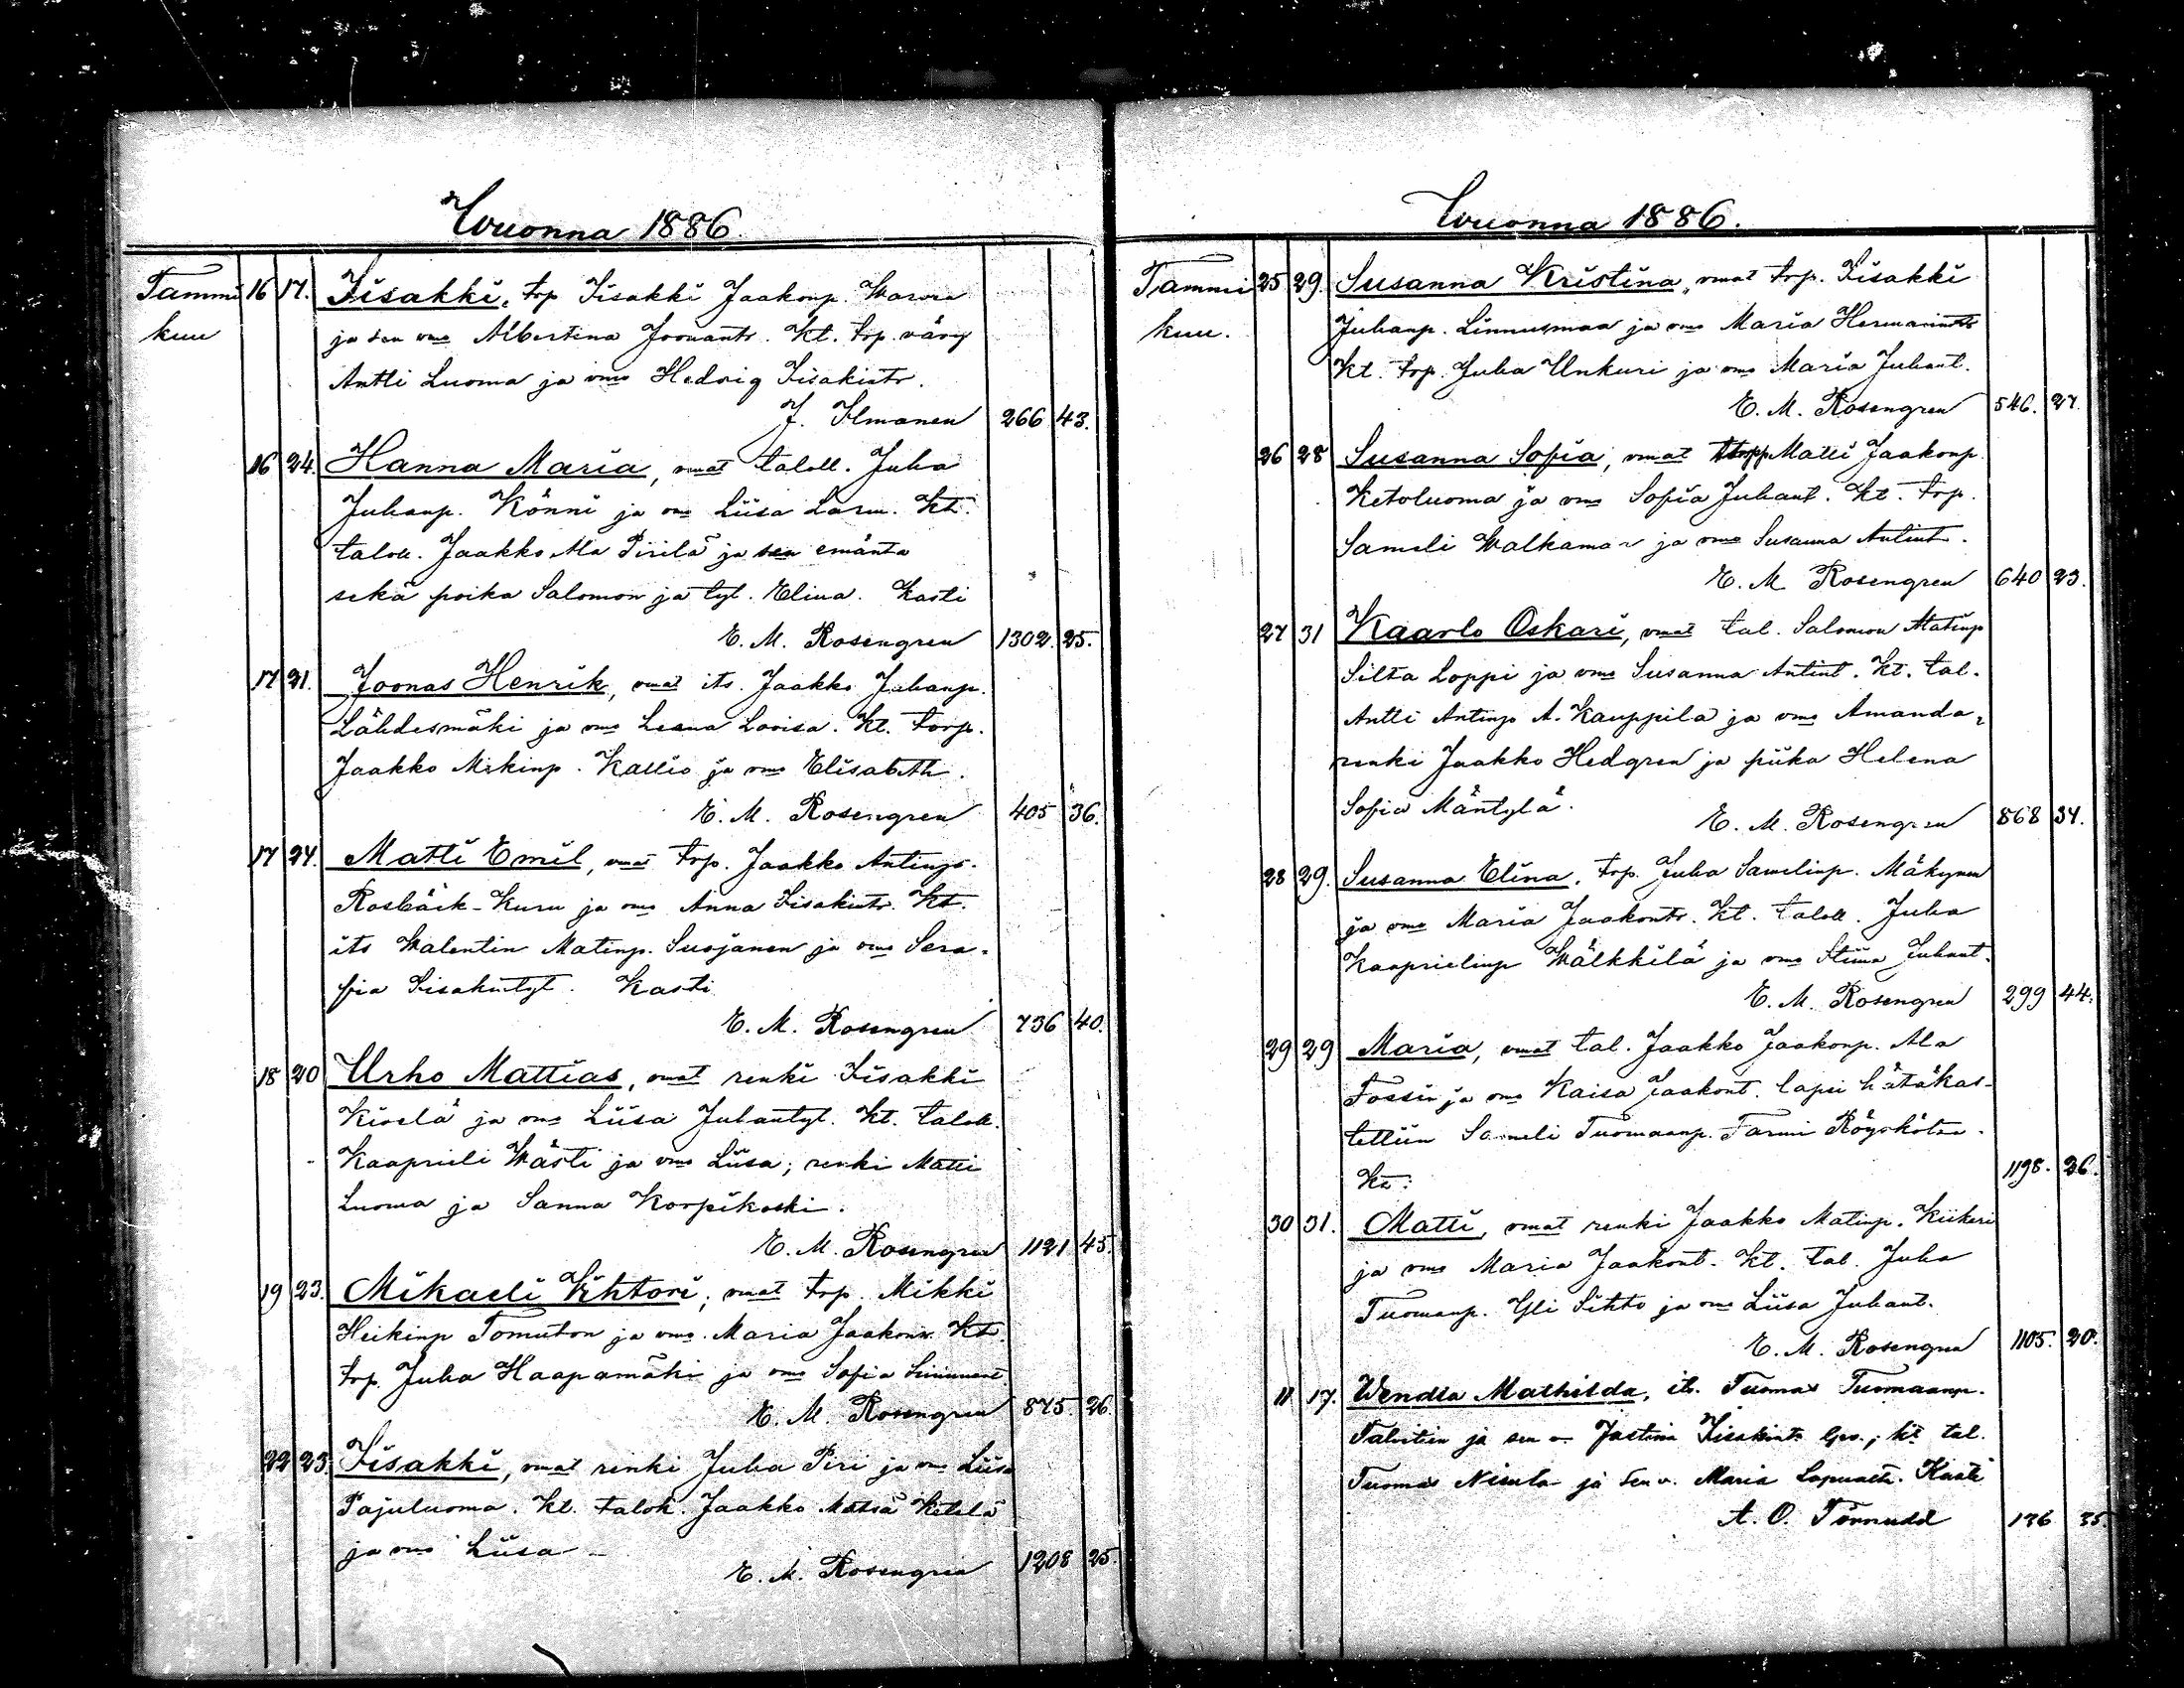 Wuonna 1886.
Tammi 16 17. Iisakki, trp Iisakki Jaakonp. Warvra
kuu ja sen vmo Albertina Joonantr. Kt. trp. vävy
Antti Luoma ja vmo Hedvig Iisakintr.
J. Ilmanen 266 43.
16 24. Hanna Maria, vmat taloll. Juha
Juhanp. Könni ja vmo Liisa Larw. Kt.
talon. Jaakko Ala Pirilä ja sen emäntä
sekä poika Salomon ja tyt. Elina. Kasti
E. M. Rosengren 1302. 25.
17 21. Joonas Henrik, vmat its. Jaakko Juhanp.
Lähdesmäki ja vmo Leena Lovisa. Kt. torp.
Jaakko Mikinp. Kallio ja vmo Elisabeth.
E. M. Rosengren 405 36.
17 24. Matti Emil, vmat trp. Jaakko Antinp.
Rosbäck-Kuru ja vmo Anna Iisakintr. Kt.
its Walentin Matinp. Suojanen ja vmo Sera-
fia Iisakintyt. Kasti
E. M. Rosengren 736 40.
18 20 Urho Mattias, vmat renki Iisakki
Kivelä ja vmo Liisa Juhantyt. Kt. talok.
Kaaprieli Wästi ja vmo Liisa; renki Matti
Luoma ja Sanna Korpikoski.
E. M. Rosengren 1121 45.
19 23. Mikaeli Wihtori; vmat trp. Mikki
Heikinp Tomuton ja vmo. Maria Jaakontr. Kt.
trp. Juha Haapamäki ja vmo Sofia Simunent
E. M. Rosengren 875. 26.
22 23. Iisakki, vmat renki Juha Piri ja vmo Liisa
Pajuluoma. Kt. talok. Jaakko Matsä Ketelä
ja vmo Liisa
E. M. Rosengren 1208 25.
Wuonna 1886.
Tammi 25 29. Susanna Kristina, vmat trp. Iisakki
kuu. Juhanp. Linnusmaa ja vmo Maria Hermanintr
Kt. trp. Juha Unkuri ja vmo Maria Juhant.
E. M. Rosengren 546. 27.
26 28 Susanna Sofia, vmat trp Matti Jaakonp.
Ketoluoma ja vmo Sofia Juhant. Kt. trp.
Sameli Walkama ja vmo Susanna Antint.
E. M. Rosengren 640 23.
27 31 Kaarlo Oskari, vmat tal. Salomon Matinp
Silta Loppi ja vmo Susanna Antint. Kt. tal.
Antti Antinp A. Kauppila ja vmo Amanda,
renki Jaakko Hedgren ja piika Helena
Sofia Mäntylä.
E. M. Rosengren 868 34.
28 29. Susanna Elina, trp. Juha Samelinp. Mäkynen
ja vmo Maria Jaakontr. Kt. talok. Juha
Kaaprielinp Wälkkilä ja vmo Stiina Juhant.
E. M. Rosengren 299 44.
29 29 Maria, vmat tal. Jaakko Jaakonp. Ala
Fossin ja vmo Kaisa Jaakont. lapsi hätäkas-
tettiin Sameli Tuomaanp. Farmi Röyskötsa.
Kt: 1198. 26.
30 31. Matti, vmat renki Jaakko Matinp. Kiikeri
ja vmo Maria Jaakont. Kt. tal. Juha
Tuomanp. Yli Sihto ja vmo Liisa Juhant.
E. M. Rosengren 1105. 20.
11 17. Wendla Mathilda, it. Tuomas Tuomaanp.
Talvitien ja sen v. Justina Iisakintr ; kt tal.
Tuomas Nisula ja sen v. Maria Kasti
A. O. Törnudd 136 35.